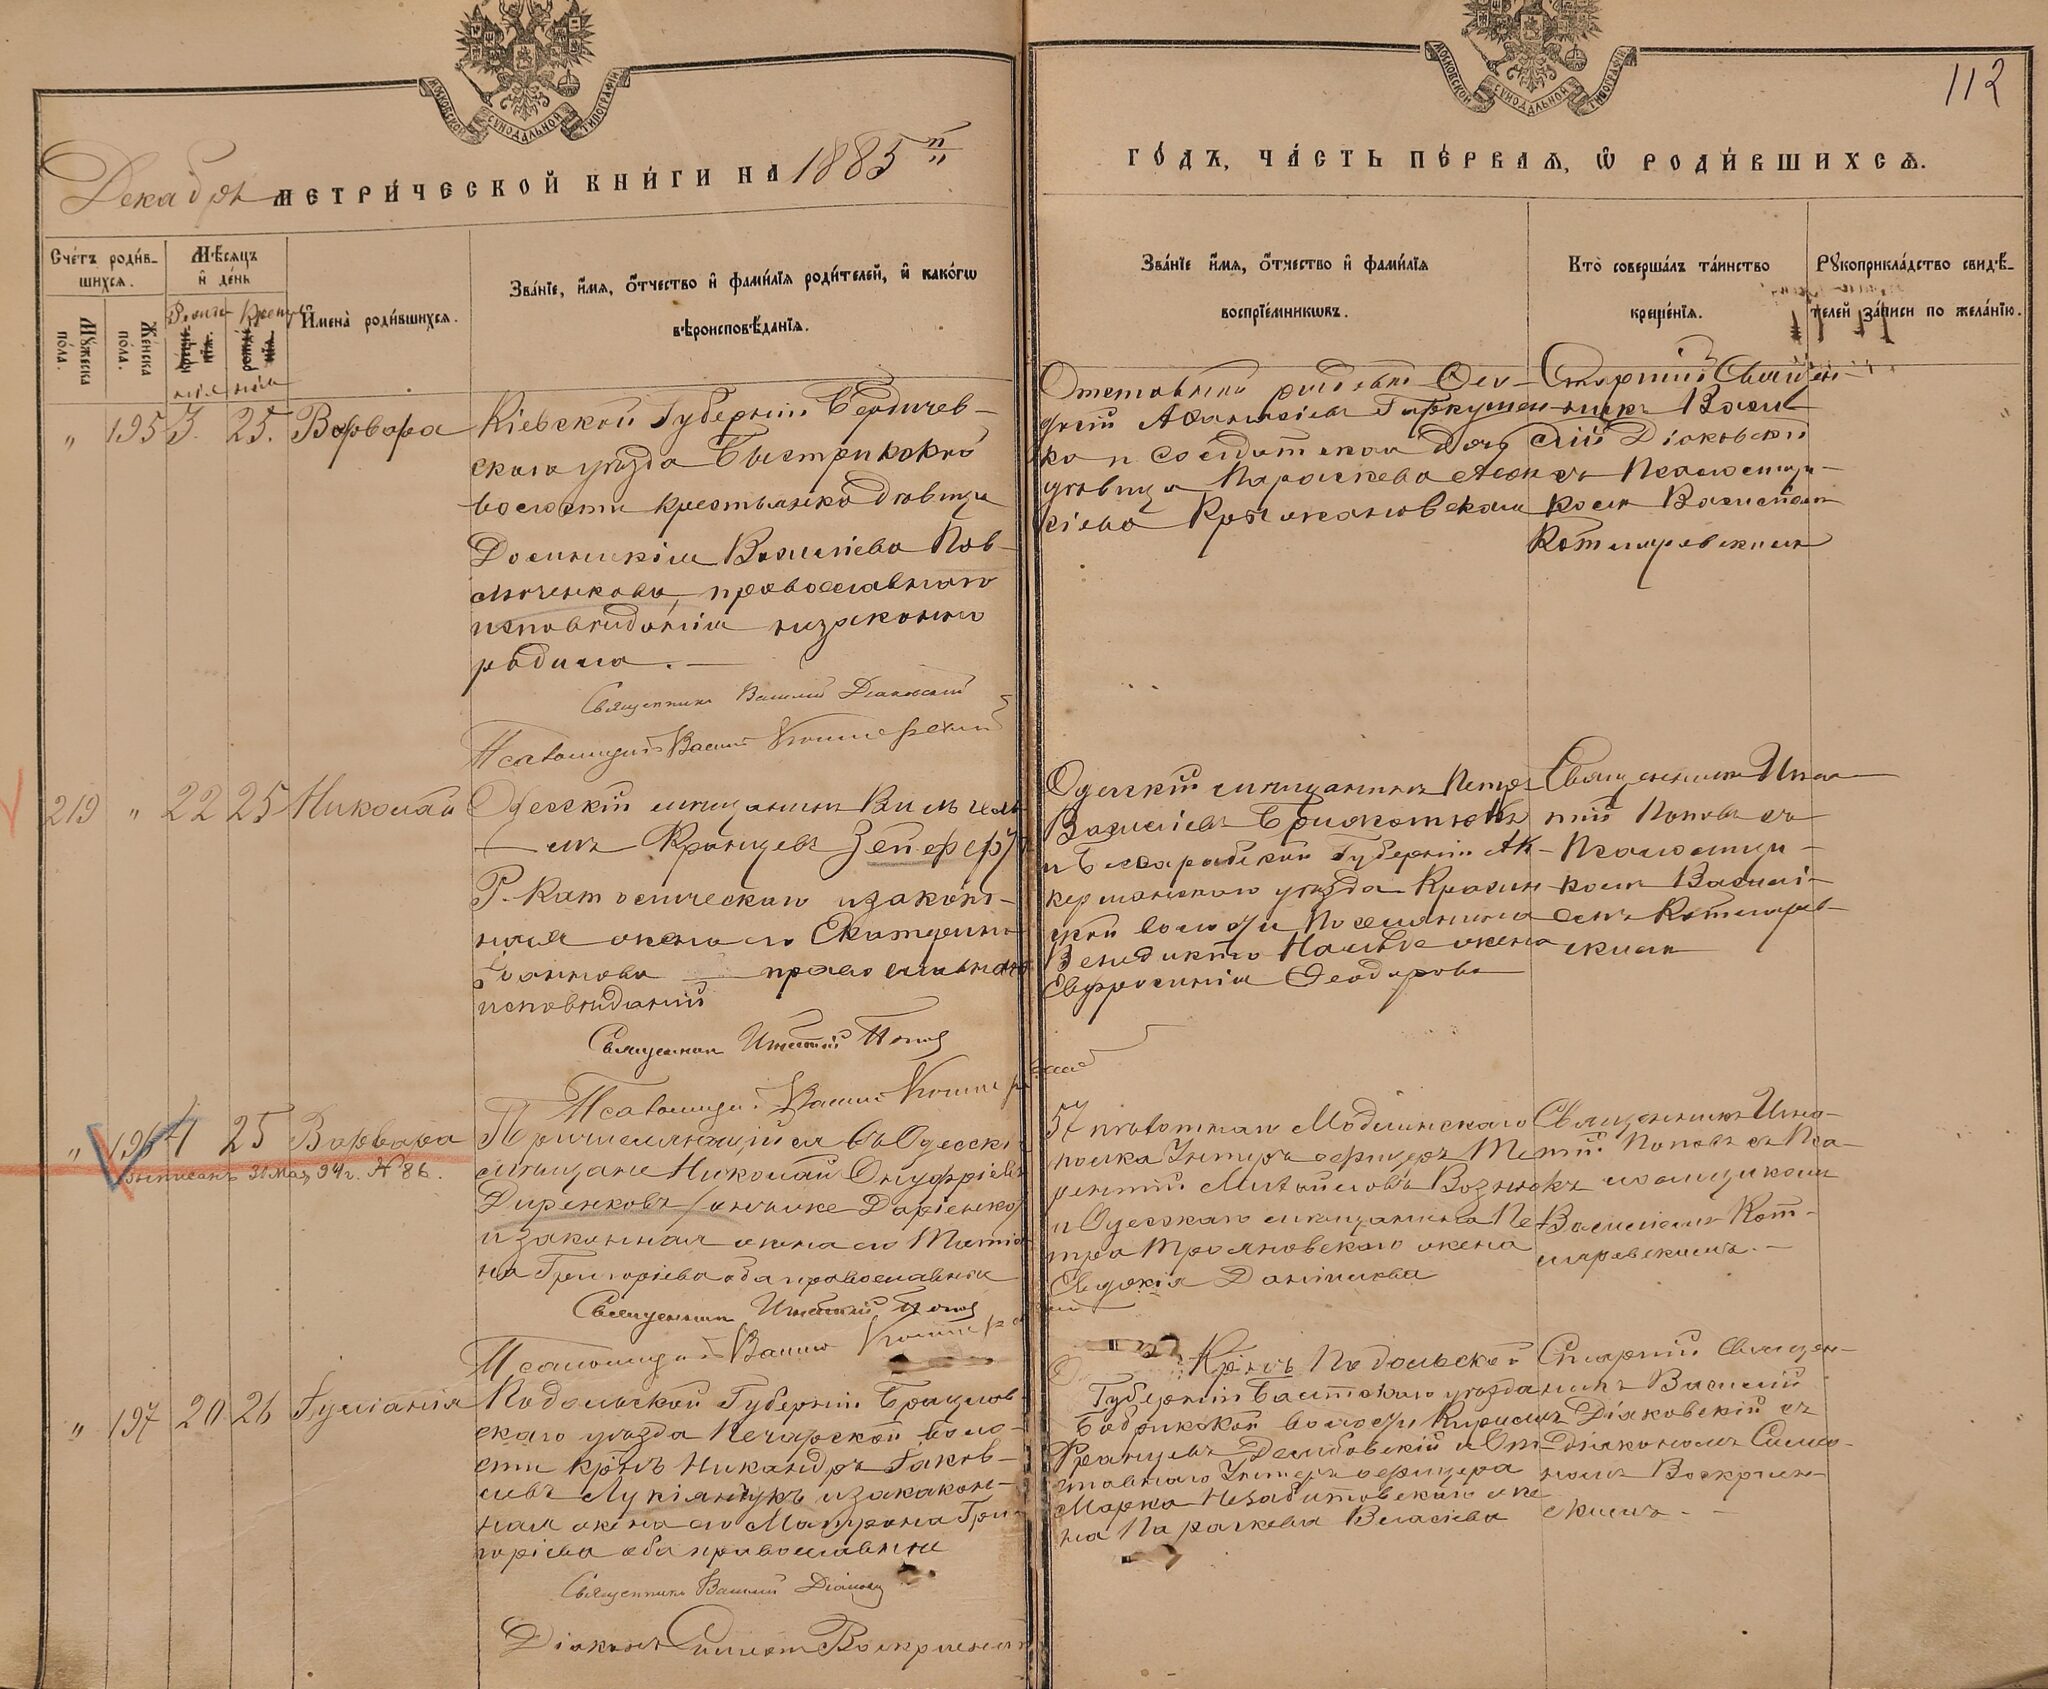 МОСКОВСКОЙ СУНОДАЛЬНОЙ ТИПОГРАФІИ
МОСКОВСКОЙ СУНОДАЛЬНОЙ ТИПОГРАФІИ
112
Декабрь МЕТРИ́ЧЕСКОЙ КНИ́ГИ НА 1885 й
ГО́ДЪ, ЧА́СТЬ ПЕ́РВАЯ, Ѽ РОДИ́ВШИХСѦ.
Сче́тъ роди́в-
шихсѧ.
Мꙋ́жеска по́ла.
Же́нска по́ла.
Мѣ́сѧцъ
и҆ де́нь
И҆мена̀ роди́вшихсѧ.
Зва́нїе, и҆́мѧ, ѻ҆́тчество и҆ фами́лїѧ роди́телей, и҆ како́гѡ
вѣроисповѣ́данїѧ.
Зва́нїе и҆́мѧ, ѻ҆́тчество и҆ фами́лїѧ
воспрїе́мникѡвъ.
Кто̀ соверша́лъ та́инство
креще́нїѧ.
Рꙋкоприкла́дство свидѣ́-
телей за́писи по жела́нїю.
" 195 3. 25. Варвара
Кіевской Губерніи Бердичев-
скаго уѣзда Быстрикской
волости крестьянка дѣвица
Доминикія Василіева Пав-
люченкова, православнаго
исповѣданія незаконно
родила. —
Священникъ Василій Діаковскій
Псаломщикъ Василій Котляревскій
Отставной рядовой
Аѳанасіевъ Гаркушен-
ко и солдатская дочь
дѣвица Параскева
Старшій Священ-
никъ Васи-
лій Діаковскій
съ Псаломщи-
комъ Василіемъ
Котляревскимъ
219 " 22 25 Николай
Одесскій мѣщанинъ Вильгель-
мъ Францевъ Зепферъ
Р. Католическаго и закон-
ная жена его Екатерина
Іоаннова православнаго
исповѣданій
Священникъ Игнатій Поповъ
Псаломщикъ Василій Котляревскій
Одесскій мѣщанинъ Петръ
Василіевъ
и Бессарабской Губерніи Ак-
керманскаго уѣзда
волости поселянина
жена
Евфросинія Ѳеодорова
Священникъ Игна-
тій Поповъ съ
Псаломщи-
комъ Василі-
емъ Котлярев-
скимъ
" 196 4 25 Варвара
Выписанъ 31 Мая 94 г. № 86.
Причисляющійся въ Одесскіе
мѣщане Николай Онуфріевъ
Диренковъ /онъ же Даріенко/
и законная жена его Татіа-
на Григоріева оба православные
Священникъ Игнатій Поповъ
Псаломщикъ Василій Котляревскій
57 пѣхотнаго Модлинскаго
полка Унтеръ офицеръ Те-
рентій Михайловъ Вознюкъ
и Одесскаго мѣщанина Пе-
тра Трояновскаго жена
Евдокія Даніилова
Священникъ Игна-
тій Поповъ съ Пса-
ломщикомъ
Василіемъ Кот-
ляревскимъ. —
" 197 20 26 Іуліанія
Подольской Губерніи Брацлав-
скаго уѣзда Печарской воло-
сти крнъ Никандръ Іаков-
левъ Лукіянчукъ и закакон-
ная жена его Матрона Гри-
горіева оба православные
Священникъ Василій Діаковскій
Діаконъ Симеонъ Воскресенскій
Крнъ Подольской
Губерніи Балтскаго уѣзда
волости Кириллъ
Францевъ Дембовскій и От-
ставнаго Унтеръ офицера
Марка Незабитовскаго же-
на Параскева Власіева
Старшій Священ-
никъ Василій
Діаковскій съ
Діакономъ Симео-
номъ Воскресен-
скимъ. —